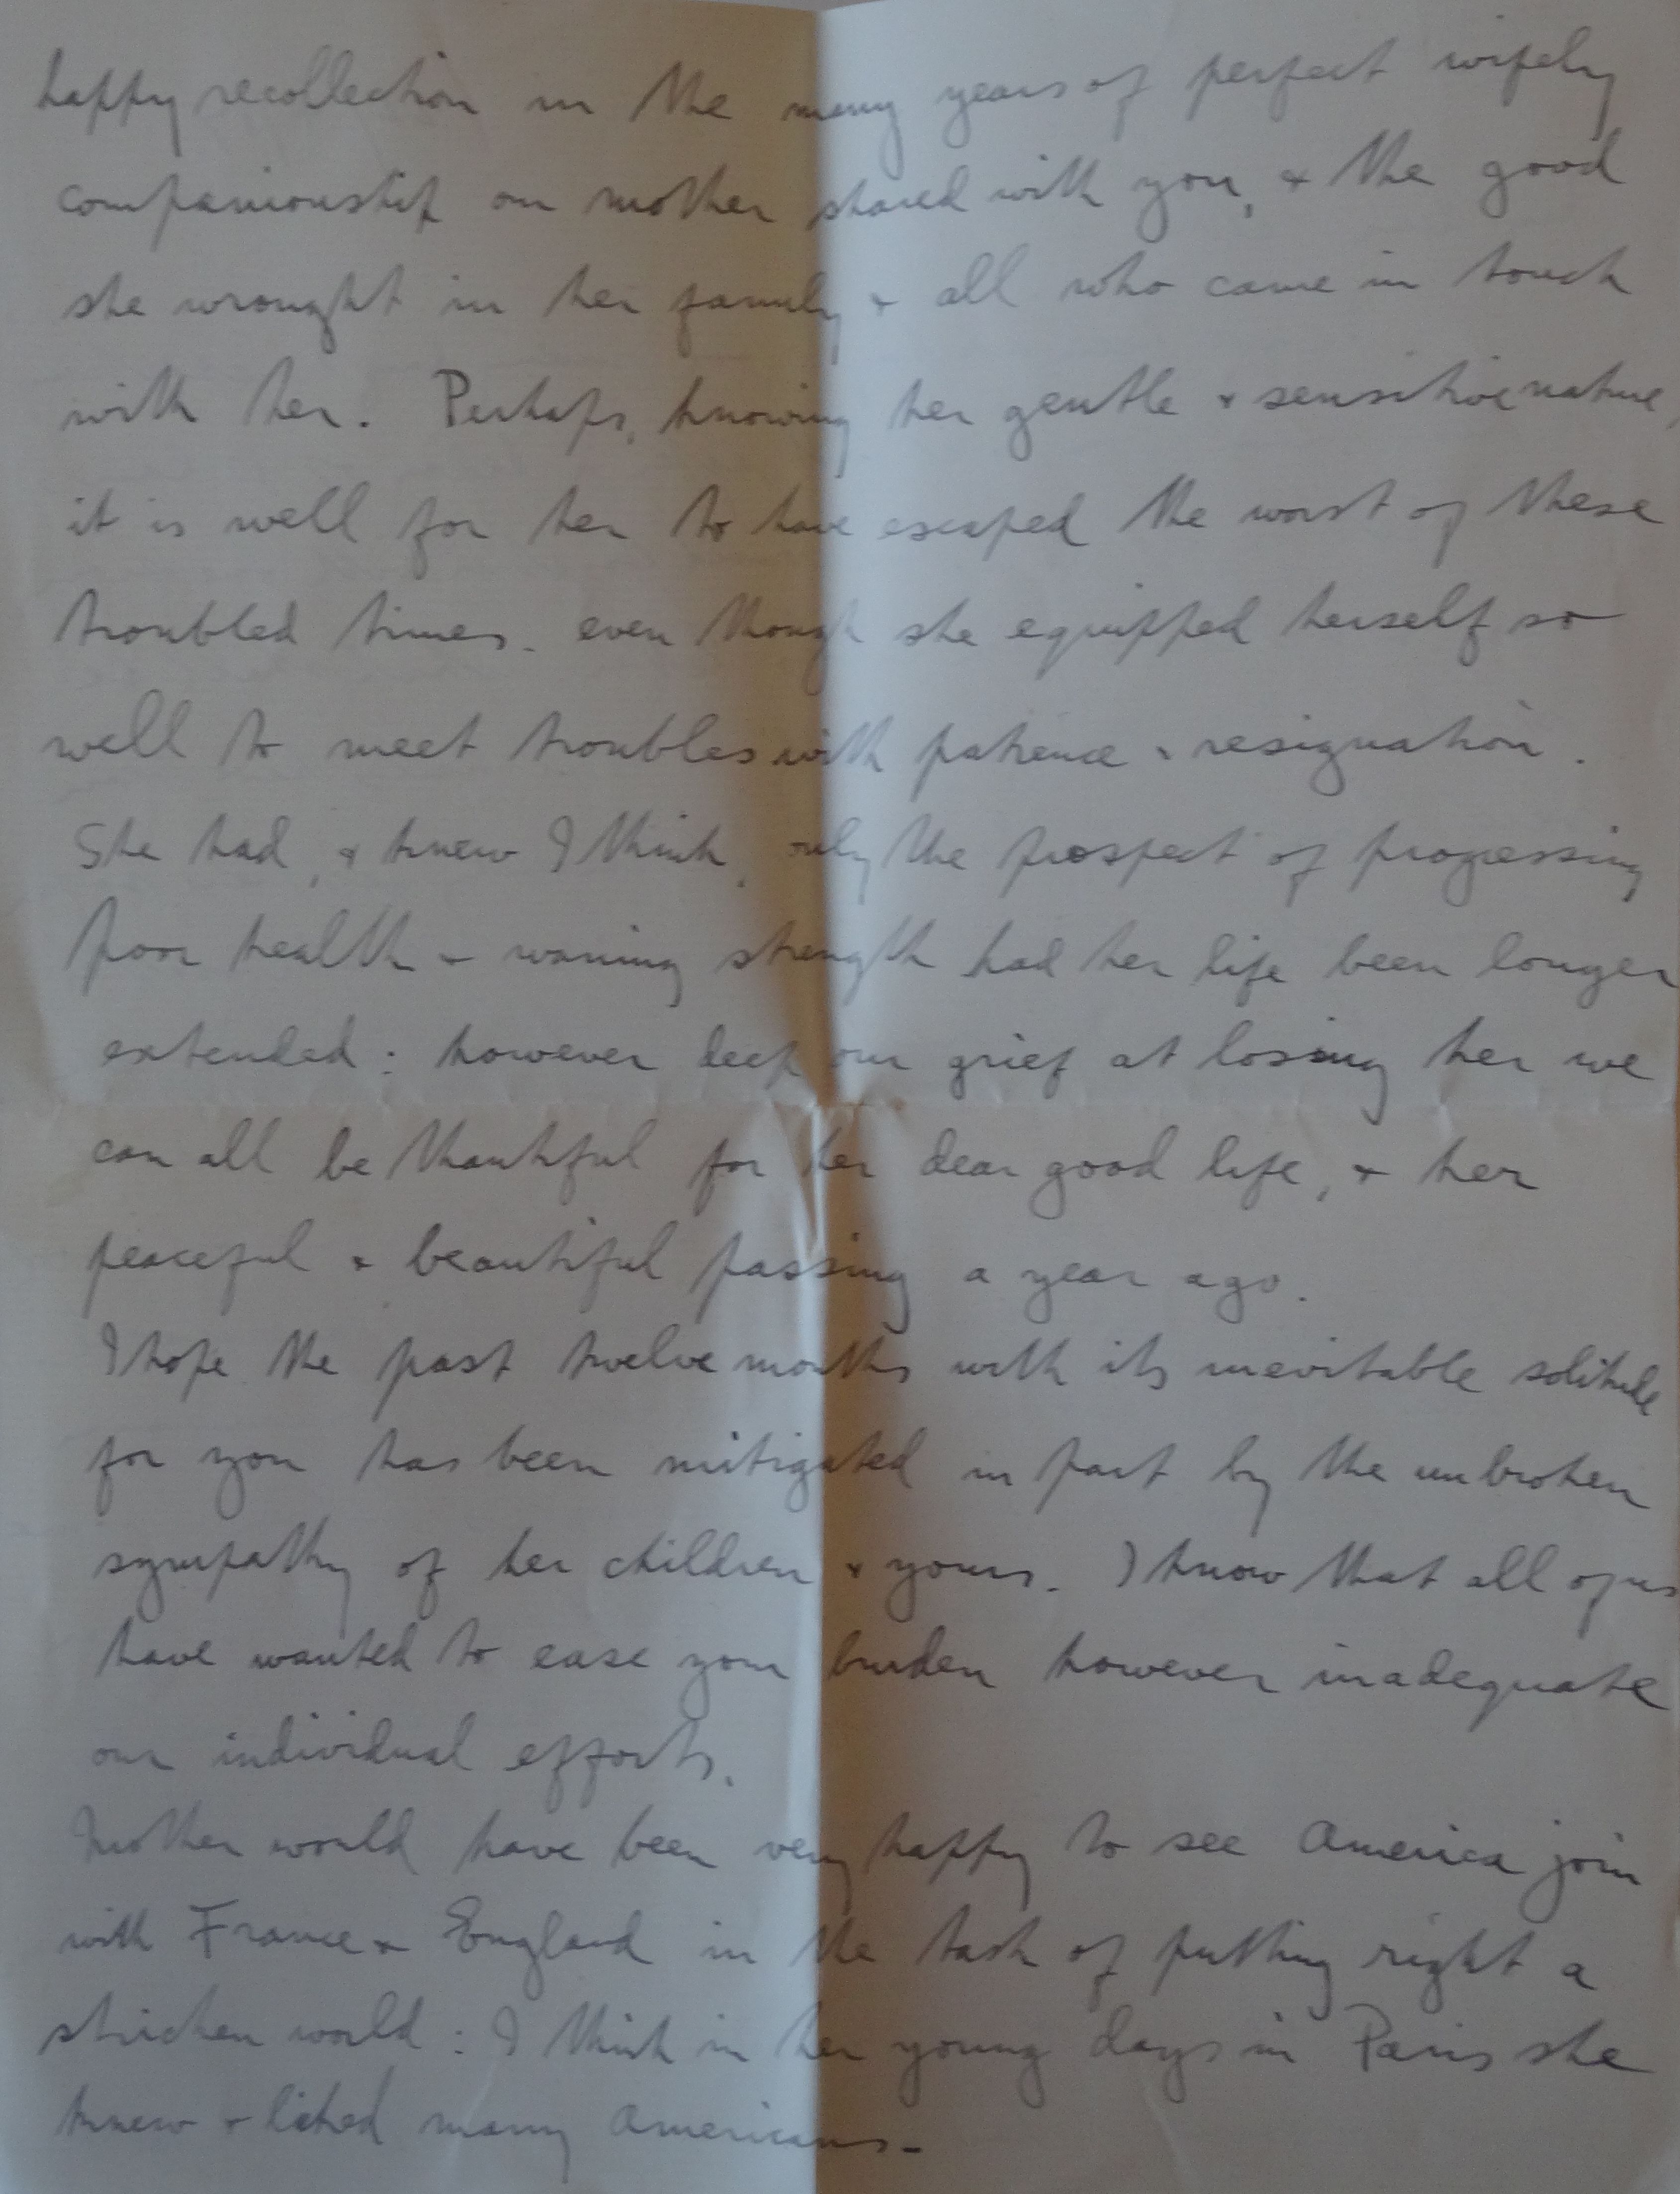 happy recollection in the many years of perfect wifely
companionship our mother shared with you, & the good
she wrought in her family & all who came in touch
with her. Perhaps, knowing her gentle & sensitive nature,
it is well for her to have escaped the worst of these
troubled times. even though she equipped herself so
well to meet troubles with patience & resignation.
She had, & knew I think, only the prospect of progressing
poor health & waning strength had her life been longer
extended: however deep our grief at losing her we
can all be thankful for her dear good life, & her
peaceful & beautiful passing a year ago.
I hope the past twelve months with its inevitable solitude
for you has been mitigated in part by the unbroken
sympathy of her children & yours. I know that all of us
have wanted to ease your burden however inadequate
our individual efforts.
Mother would have been very happy to see America join
with France & England in the task of putting right a
stricken world: I think in her young days in Paris she
knew & liked many Americans-